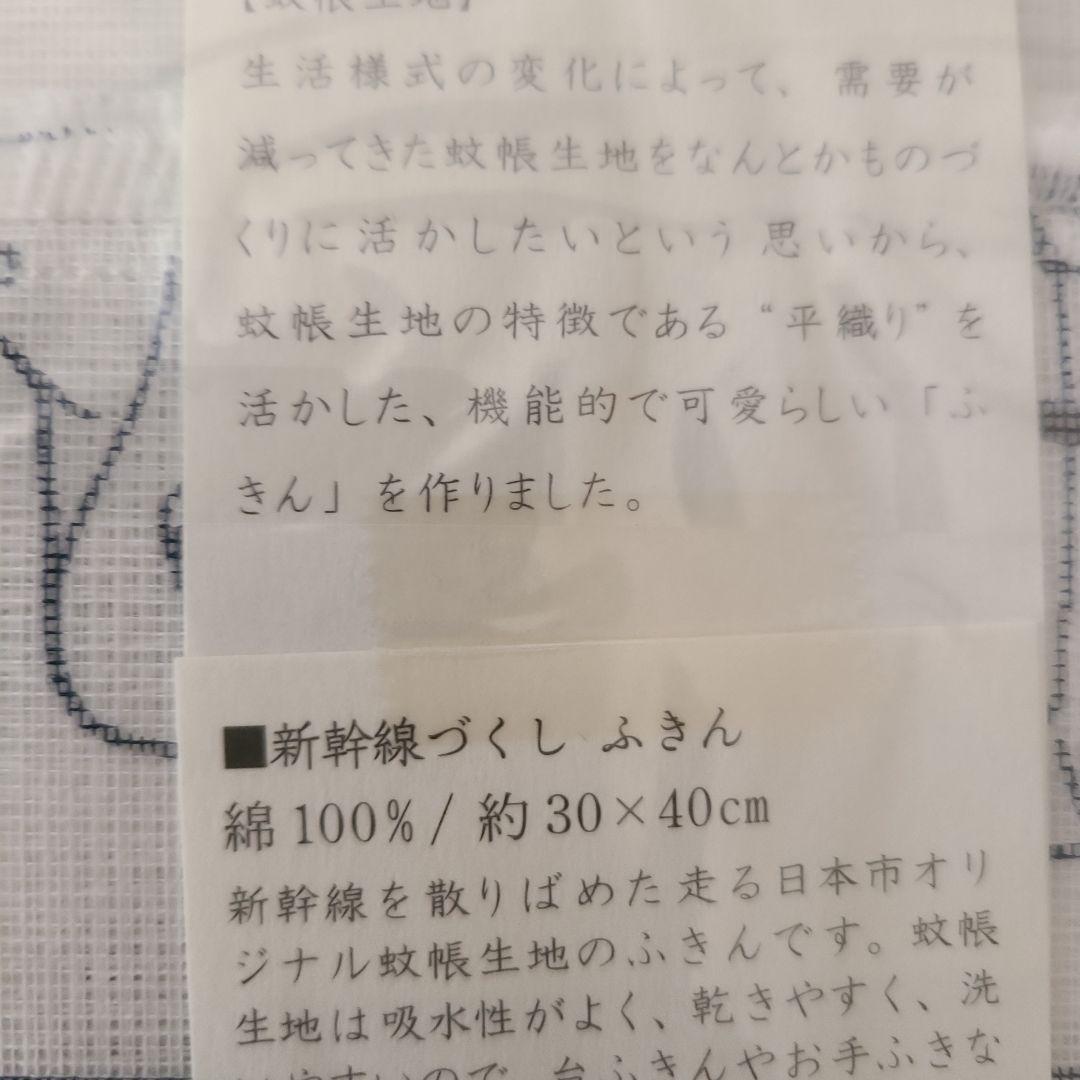 【蚊帳生地】
生活様式の変化によって、需要が
減ってきた蚊帳生地をなんとかものづ
くりに活かしたいという思いから、
蚊帳生地の特徴である“平織り”を
活かした、機能的で可愛らしい「ふ
きん」を作りました。
■新幹線づくし ふきん
綿100%/ 約30×40cm
新幹線を散りばめた走る日本市オリ
ジナル蚊帳生地のふきんです。蚊帳
生地は吸水性がよく、乾きやすく、洗
いやすいので、台ふきんやお手ふきな